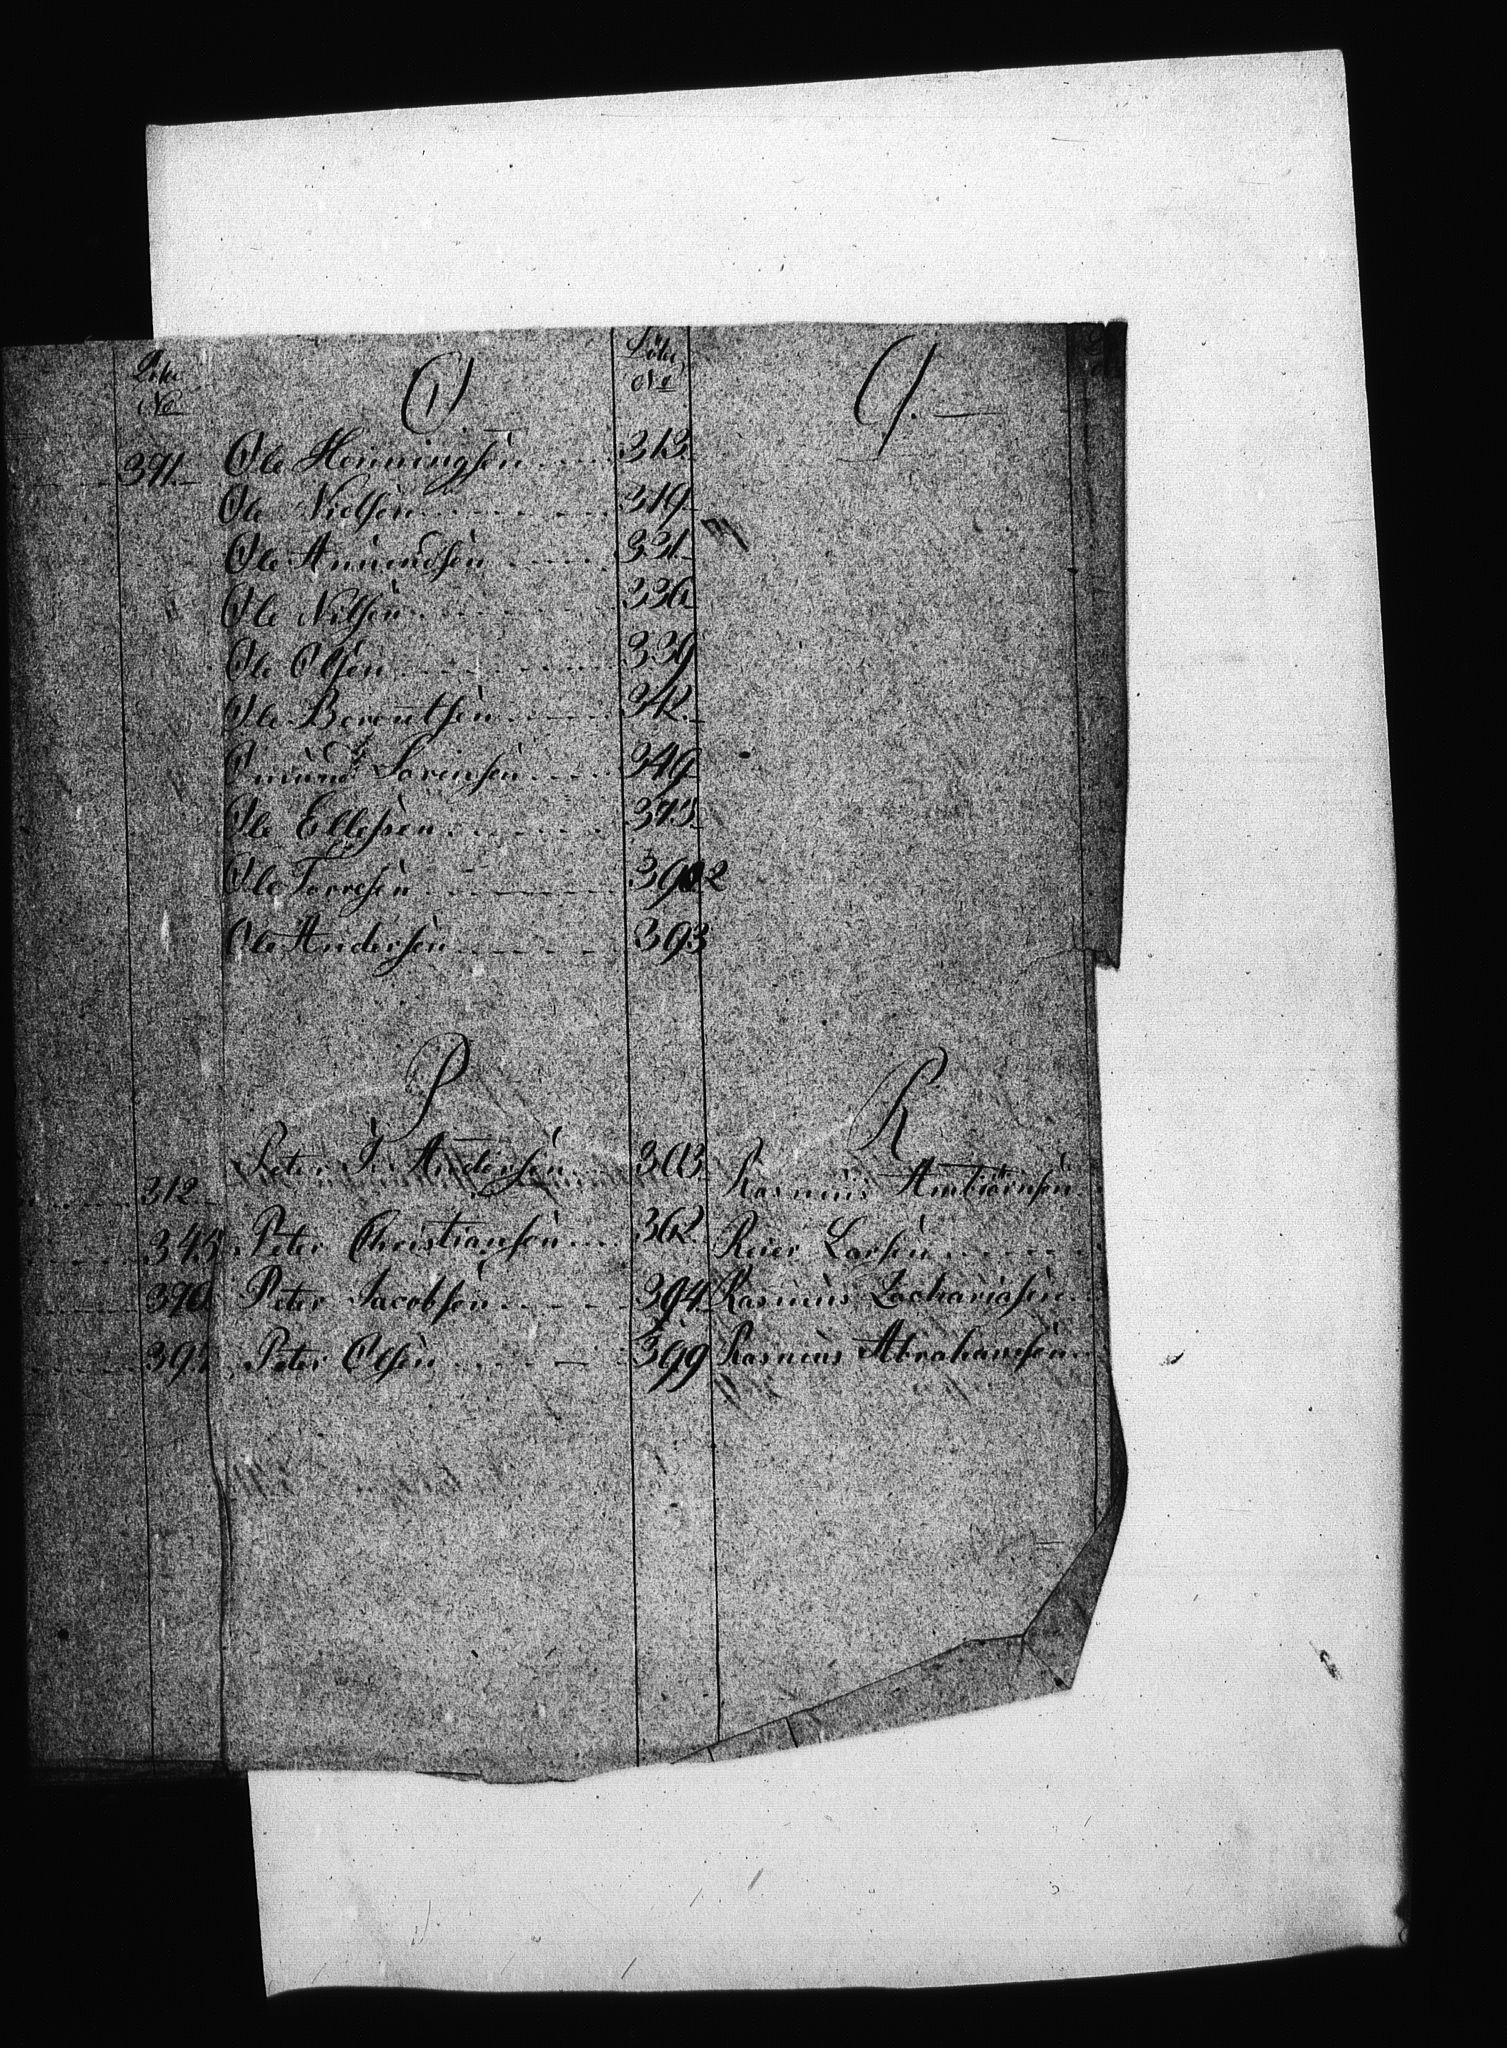 No
391
312
345
O.
Ole Henningsen 313
Ole Nielsen 319
Ole Amundsen 331
Ole Nilsen 336
Ole Olsen 339
Ole Berentsen 342
Omund Sørensen 349
Ole Ellefsen
Ole Torresen
Ole Andersen 393
P
Peter Andersen 303
Peter Christiansen 362
Peter Jacobsen 394
Peter Olsen 399
No
Q.
R
Rasmus Ambiörnsen
Reier Larsen
Rasmus Zachariasen
Rasmus Abrahamsen